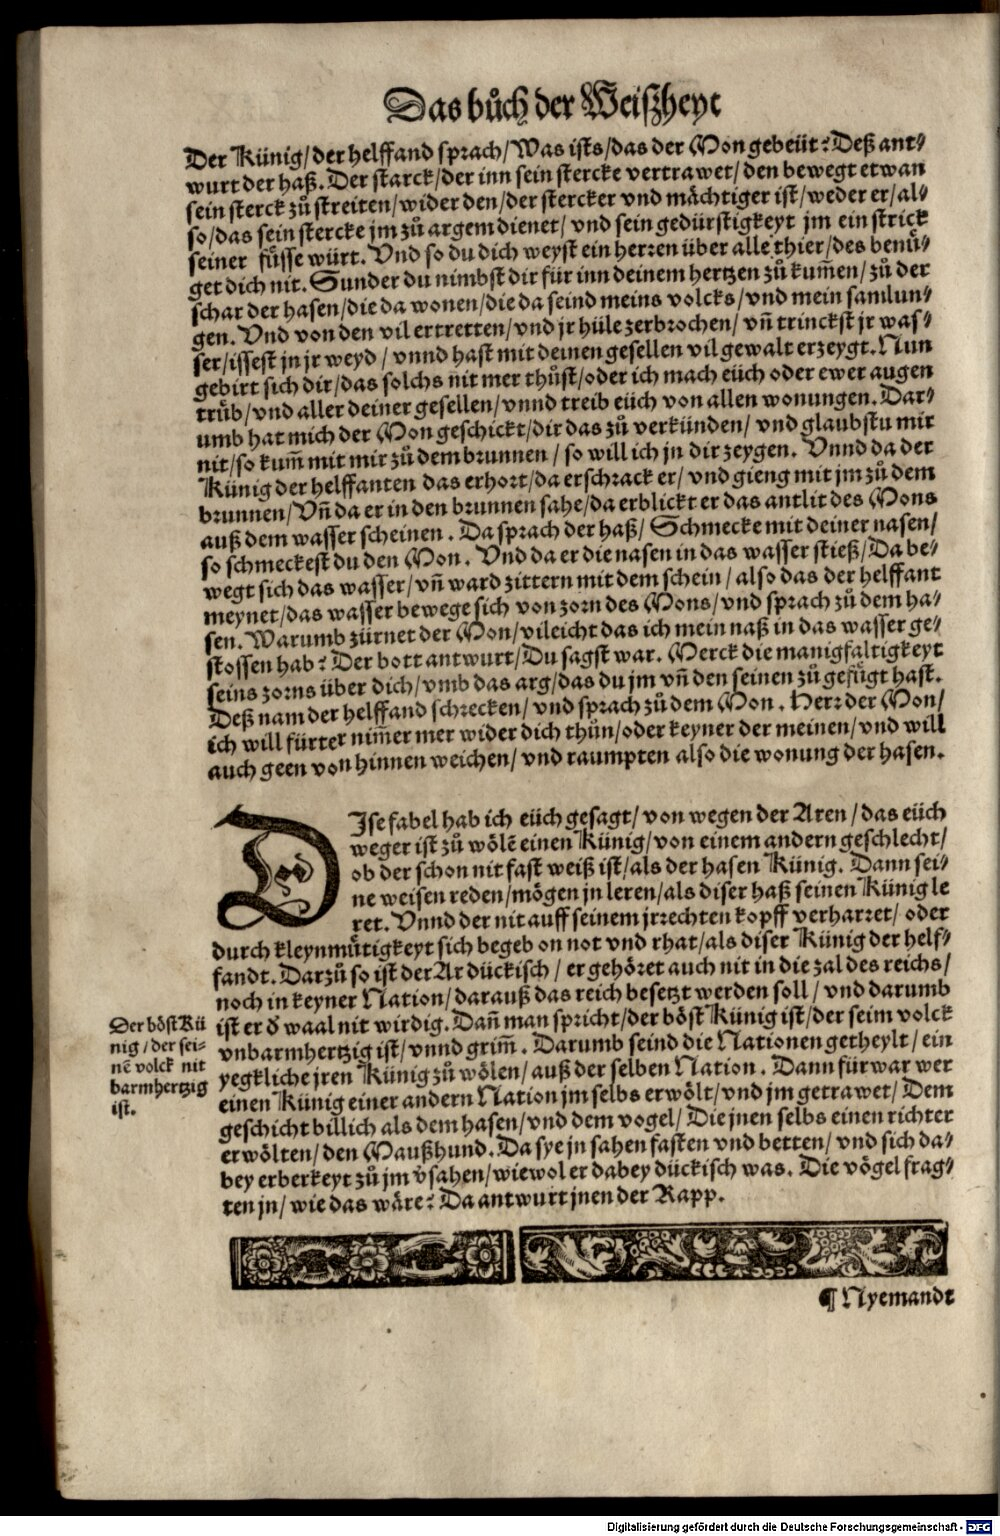 Das bůch der Weißheyt
Der Künig/der helffand sprach/Was ists/das der Mon gebeüt? Deß ant-
wurt der haß. Der starck/der inn sein stercke vertrawet/den bewegt etwan
sein sterck zů streiten/wider den/der stercker vnd mächtiger ist/weder er/al-
so/das sein stercke jm zů argem dienet/vnd sein gedürstigkeyt jm ein strick
seiner füsse würt. Vnd so du dich weyst ein herren über alle thier/des benü-
get dich nit. Sunder du nimbst dir für inn deinem hertzen zů kum̃en/zů der
schar der hasen/die da wonen/die da seind meins volcks/vnd mein samlun-
gen. Vnd von den vil ertretten/vnd jr hüle zerbrochen/vñ trinckst jr was-
ser/issest jn jr weyd/vnnd hast mit deinen gesellen vil gewalt erzeygt. Nun
gebirt sich dir/das solchs nit mer thůst/oder ich mach eüch oder ewer augen
trüb/vnd aller deiner gesellen/vnnd treib eüch von allen wonungen. Dar-
umb hat mich der Mon geschickt/dir das zů verkünden/vnd glaubstu mir
nit/so kum̃ mit mir zů dem brunnen/so will ich jn dir zeygen. Vnnd da der
Künig der helffanten das erhort/da erschrack er/vnd gieng mit jm zů dem
brunnen/Vñ da er in den brunnen sahe/da erblickt er das antlit des Mons
auß dem wasser scheinen. Da sprach der haß/Schmecke mit deiner nasen/
so schmeckest du den Mon. Vnd da er die nasen in das wasser stieß/Da be-
wegt sich das wasser/vñ ward zittern mit dem schein/also das der helffant
meynet/das wasser bewege sich von zorn des Mons/vnd sprach zů dem ha-
sen. Warumb zürnet der Mon/vileicht das ich mein naß in das wasser ge-
stossen hab? Der bott antwurt/Du sagst war. Merck die manigfaltigkeyt
seins zorns über dich/vmb das arg/das du jm vñ den seinen zů gefügt hast.
Deß nam der helffand schrecken/vnd sprach zů dem Mon. Herr der Mon/
ich will fürter nim̃er mer wider dich thůn/oder keyner der meinen/vnd will
auch geen von hinnen weichen/vnd raumpten also die wonung der hasen.
DIse fabel hab ich eüch gesagt/von wegen der Aren/das eüch
weger ist zů wölẽ einen Künig/von einem andern geschlecht/
ob der schon nit fast weiß ist/als der hasen Künig. Dann sei-
ne weisen reden/mögen jn leren/als diser haß seinen Künig le
ret. Vnnd der nit auff seinem jrrechten kopff verharret/oder
durch kleynmütigkeyt sich begeb on not vnd rhat/als diser Künig der helf-
fandt. Darzů so ist der Ar dückisch/er gehöret auch nit in die zal des reichs/
noch in keyner Nation/darauß das reich besetzt werden soll/vnd darumb
ist er d̛ waal nit wirdig. Dañ man spricht/der böst Künig ist/der seim volck
vnbarmhertzig ist/vnnd grim̃. Darumb seind die Nationen getheylt/ein
yegkliche jren Künig zů wölen/auß der selben Nation. Dann fürwar wer
einen Künig einer andern Nation jm selbs erwölt/vnd jm getrawet/Dem
geschicht billich als dem hasen/vnd dem vogel/Die jnen selbs einen richter
erwölten/den Maußhund. Da sye jn sahen fasten vnd betten/vnd sich da-
bey erberkeyt zů jm v̛sahen/wiewol er dabey dückisch was. Die vögel frag-
ten jn/wie das wäre? Da antwurt jnen der Rapp.
Der böst Kü
nig/der sei-
nẽ volck nit
barmhertzig
ist.
¶ Nyemandt
Digitalisierung gefördert durch die Deutsche Forschungsgemeinschaft - DFG